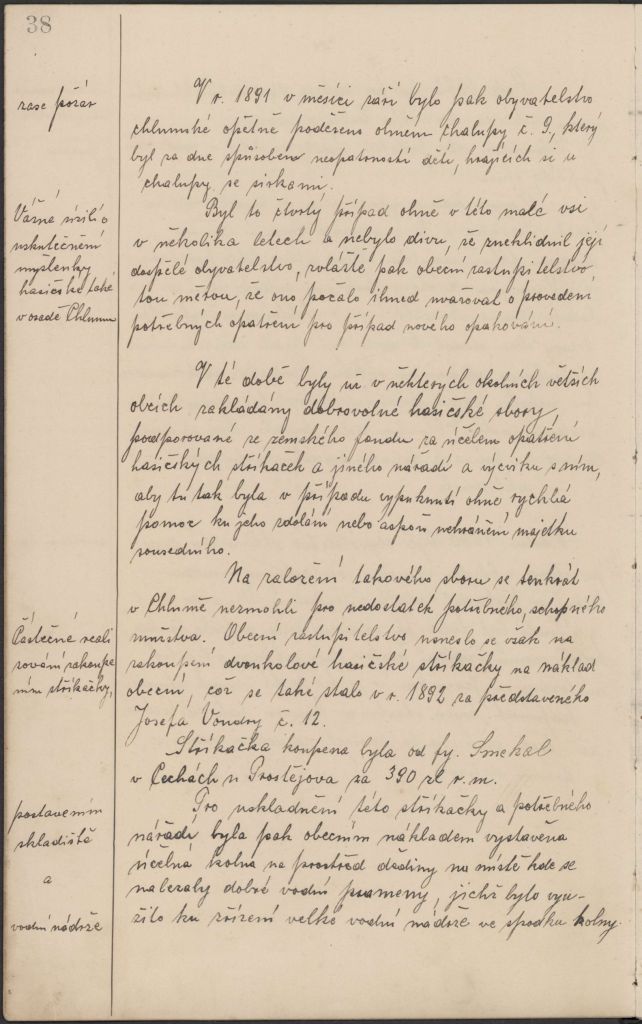 38
zase požár
V r. 1891 v měsíci září bylo pak obyvatelstvo
chlumské opětně poděšeno ohněm chalupy č. 9., který
byl za dne způsoben neopatrností dětí, hrajících si u
chalupy se sirkami.
Vážné úsilí o
uskutečnění
myšlenky
hasičské také
v osadě Chlumu
Byl to čtvrtý případ ohně v této malé vsi
v několika letech a nebylo divu, že zneklidnil její
dospělé obyvatelstvo, zvláště pak obecní zastupitelstvo,
tou měrou, že ono počalo ihned uvažovat o provedení
potřebných opatření pro případ nového opakování.
V té době byly již v některých okolních větších
obcích zakládány dobrovolné hasičské sbory,
podporované ze zemského fondu za účelem opatření
hasičských stříkaček a jiného nářadí a výcviku s ním,
aby tu tak byla v případu vypuknutí ohně, rychlá
pomoc ku jeho zdolání nebo aspoň uchránění majetku
sousedního.
Na založení takového sboru se tenkrát
v Chlumě nezmohli pro nedostatek potřebného, schopného
Částečné reali
zování zakoupe
ním stříkačky,
mužstva. Obecní zastupitelstvo usneslo se však na
zakoupení dvoukolové hasičské stříkačky na náklad
obecní, což se také stalo v r. 1892 za představeného
Josefa Vondry č. 12.
Stříkačka koupena byla od fy. Smekal
v Čechách u Prostějova za 390 zl r. m.
postavením
skladiště
a
vodní nádrže
Pro uskladnění této stříkačky a potřebného
nářadí byla pak obecním nákladem vystavěna
účelná kolna na prostřed dědiny na místě kde se
nalezaly dobré vodní prameny, jichž bylo vyu-
žito ku zřízení velké vodní nádrže ve spodku kolny.